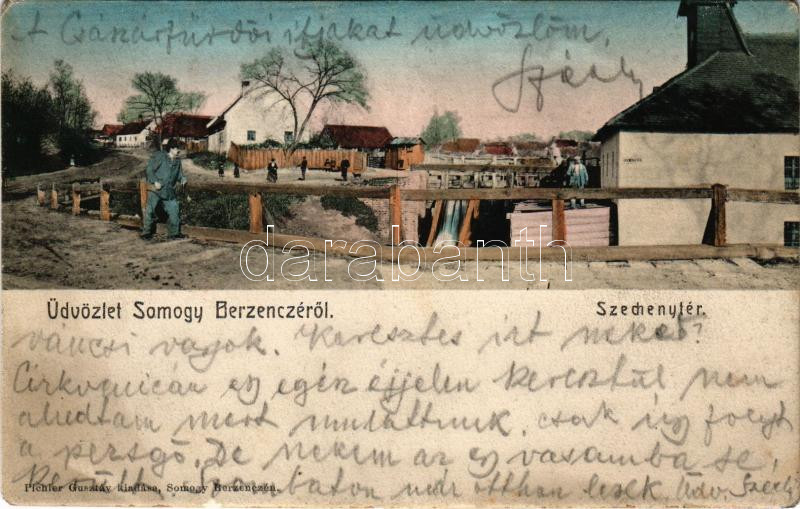 A Császárfürdői ifjakat üdvözlöm,
Széély
darabanth
Üdvözlet Somogy Berzenczéről.
Szechenytér.
váncsi vagyok. Keresztes irt neked?
Cirkvenicán egy egész éjjelen keresztül nem
aludtam mert mulattunk, csak úgy folyt
a pezsgő. De nekem az egy vasamba se
került. Szombaton már otthon leszek. Üdv.
Pichler Gusztáv kiadása, Somogy Berzenczén.